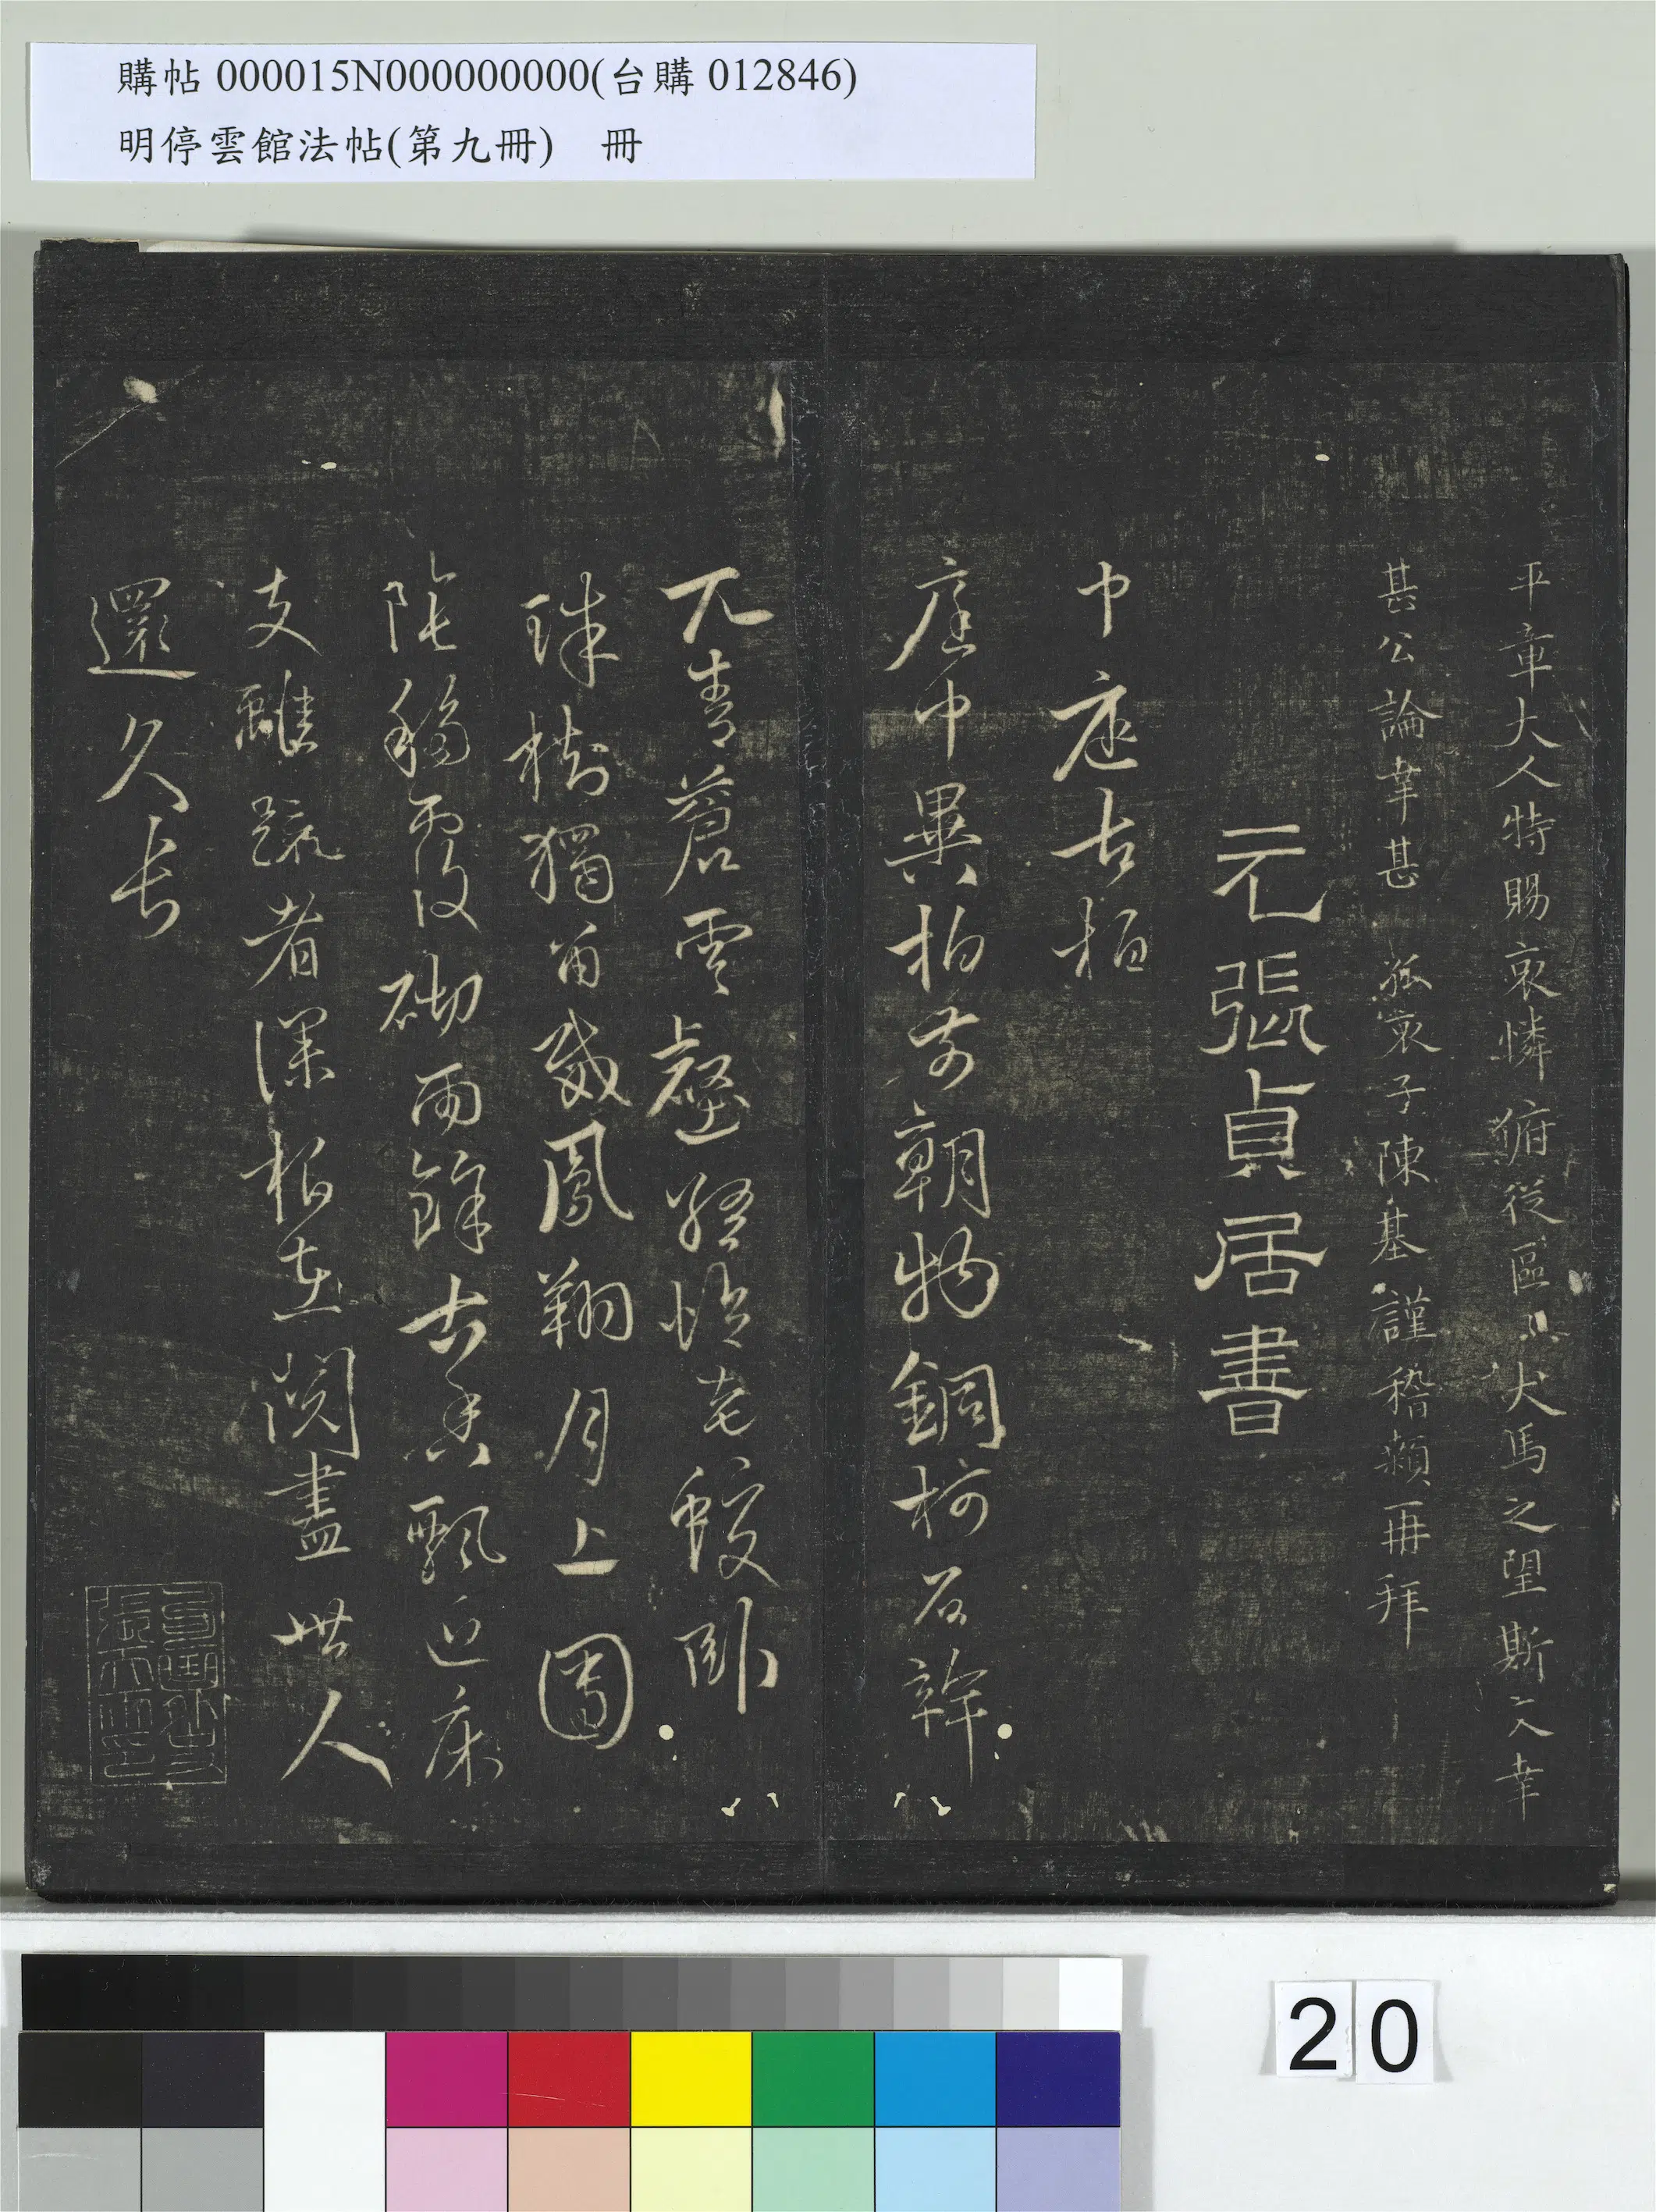 購帖 000015N000000000(台購 012846)
明停雲館法帖(第九冊)　冊
平章大人特賜哀憐俯從區〻犬馬之望斯文幸
甚公論幸甚 孤哀子陳基謹稽顙再拜
元張貞居書
中庭古柏
庭中異柏前朝物銅柯石幹
兀青蒼雲壑經時老蛟臥
珠樹獨留威鳳翔月上圓
陰移覆砌雨餘古香飄近床
支離疏者深根在閱盡世人
還久長
20